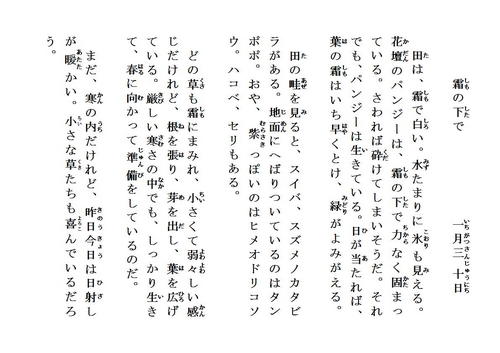 霜の下で　一月三十日
田は、霜で白い。水たまりに氷も見える。
花壇のパンジーは、霜の下で力なく固まっ
ている。さわれば砕けてしまいそうだ。それ
でも、パンジーは生きている。日が当たれば、
葉の霜はいち早くとけ、緑がよみがえる。
田の畦を見ると、スイバ、スズメノカタビ
ラがある。地面にへばりついているのはタン
ポポ。おや、紫っぽいのはヒメオドリコソ
ウ。ハコベ、セリもある。
どの草も霜にまみれ、小さくて弱々しい感
じだけれど、根を張り、芽を出し、葉を広げ
ている。厳しい寒さの中でも、しっかり生き
て、春に向かって準備をしているのだ。
まだ、寒の内だけれど、昨日今日は日射し
が暖かい。小さな草たちも喜んでいるだろ
う。